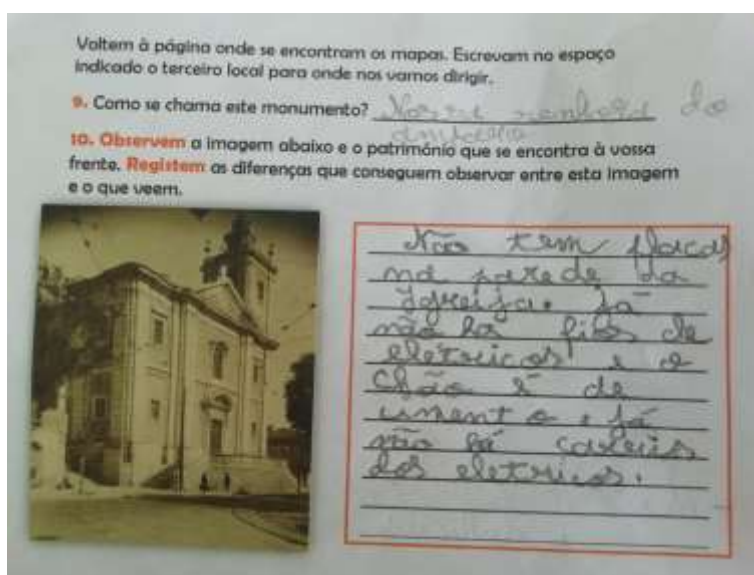 Voltem à página onde se encontram os mapas. Escrevam no espaço
indicado o terceiro local para onde nos vamos dirigir.
9. Como se chama este monumento? Nossa senhora da
10. Observem a imagem abaixo e o património que se encontra à vossa
frente. Registem as diferenças que conseguem observar entre esta imagem
e o que veem.
Não tem placas
na parede da
Igreja. Já
não há fios de
eletricos e o
Chão é de
e já
não há carris
dos eletricos.